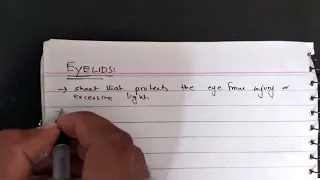 EYELIDS:
→ sheet that protects the eye from injury or
excessive light.